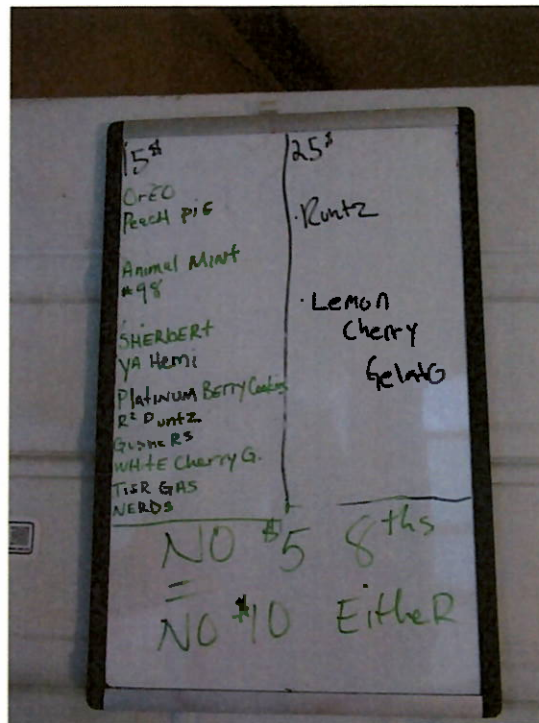 15$
OrEO
PeacH PiE
Animal Mint
#98
SHERBERT
YA Hemi
PlatiNUM BERRY Cookies
R² Runtz
GusheRS
WHitE Cherry G.
TisR GAS
NERDS
25$
·Runtz
·Lemon
Cherry
GelatO
NO $5 8ths
=
NO $10 EitheR